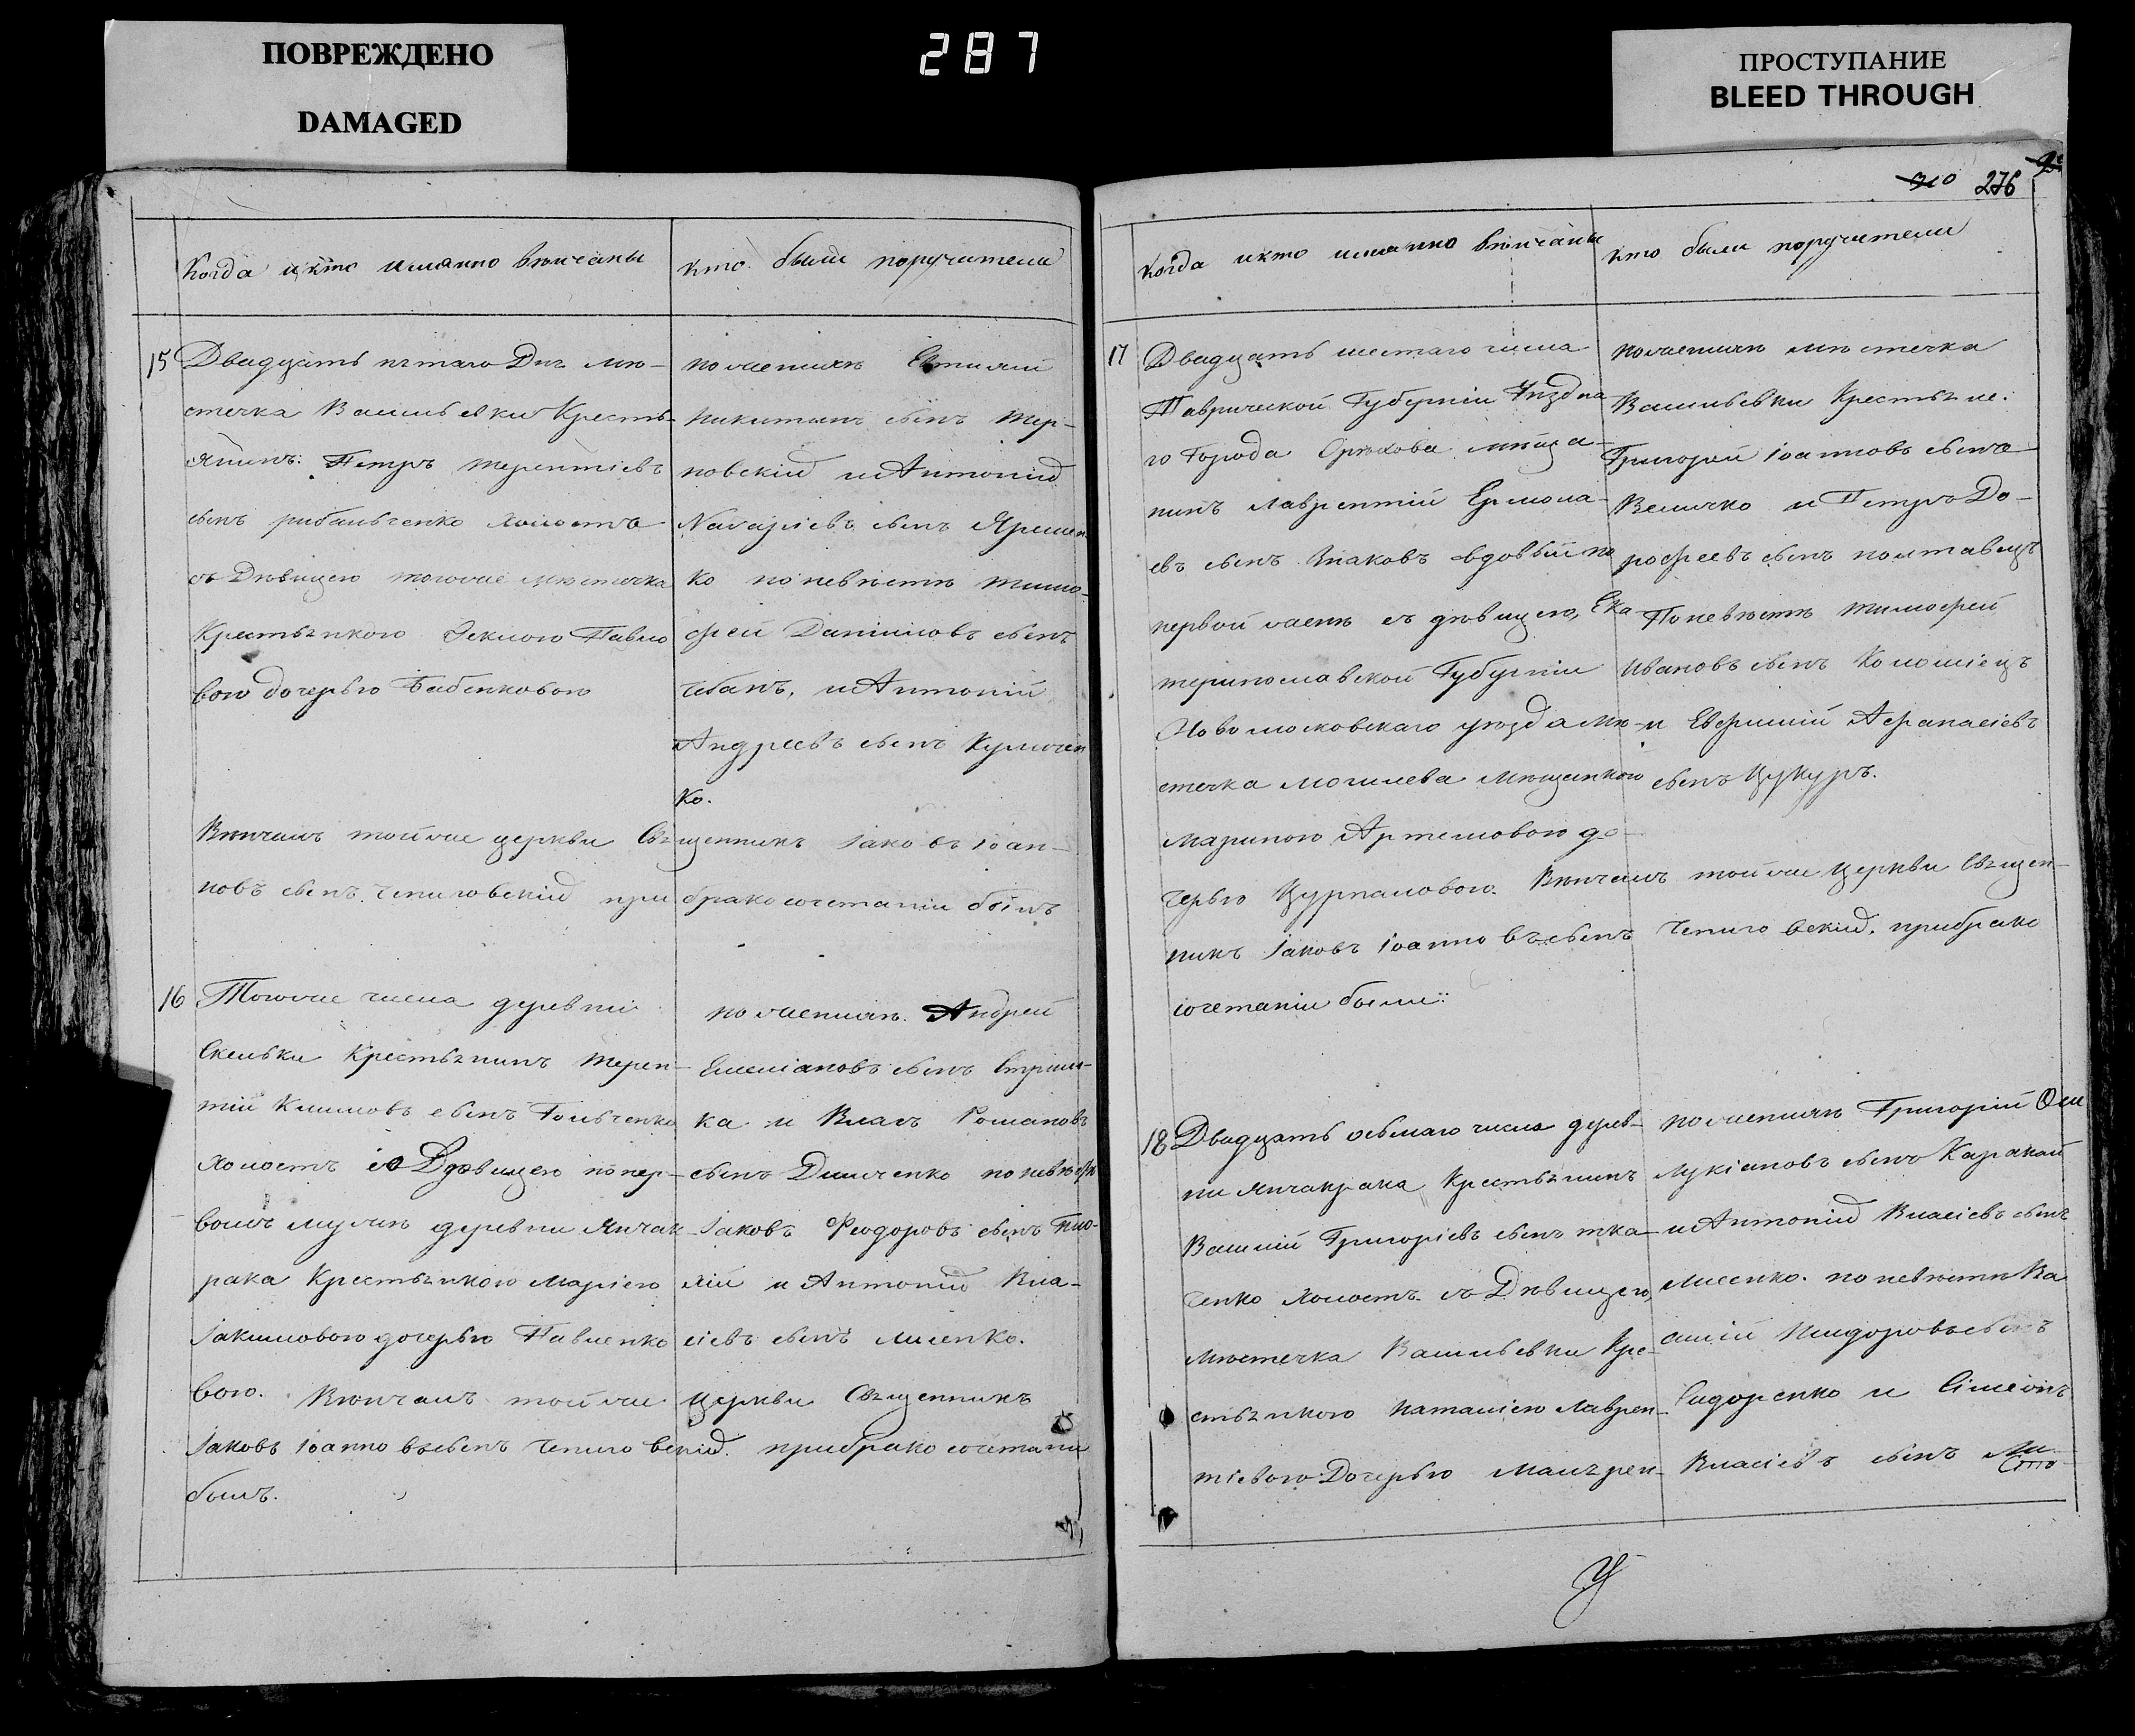 ПОВРЕЖДЕНО
DAMAGED
287
ПРОСТУПАНИЕ
BLEED THROUGH
310 276
Когда и кто имянно вѣнчаны
кто были поручители
15 Двадцать пятаго Дня мѣ-
стечка Васильевки Кресть-
янинъ: Петръ Терентіевъ
сынъ рибальченко холостъ
съ Дѣвицею тогоже мѣстечка
Крестьянкою Феклою Павло
вою дочерью Бабенковою
по женихѣ Евтихій
Никитинъ сынъ Тер-
новскій и Антоній
Назаріевъ сынъ Яремен
ко по невѣстѣ Тимо-
фей Даніиловъ сынъ
Чебанъ, и Антоній
Андреевъ сынъ Куличен
ко.
Вѣнчалъ тойже церкви Священникъ Іаковъ Іоан-
новъ сынъ Чениговскій при бракосочетаніи былъ
16 Тогоже числа деревни
Скельки Крестьянинъ Терен-
тій Климовъ сынъ Гольченко
холостъ съ Дѣвицею по пер-
вомъ мужѣ деревни Янчак-
рака Крестьянкою Маріею
Іакимовою дочерью Павленко
вою. Вѣнчалъ тойже церкви Священникъ
Іаковъ Іоанновъ сынъ Чениговскій. при бракосочетани
былъ.
по женихѣ. Андрей
Емеліановъ сынъ Стриж-
ка и Власъ Романовъ
сынъ Дипченко по невѣстѣ
Іаковъ Феодоровъ сынъ
и Антоній Вла-
сіевъ сынъ Лисенко.
Когда и кто имянно вѣнчаны
кто были поручители
17 Двадцать шестаго числа
Таврической Губерніи Уѣздна
го Города Орѣхова мѣща-
нинъ Лаврентій Ермола-
евъ сынъ Знаковъ вдовый по
первой женѣ съ дѣвицею, Ека
теринославской Губерніи
Новомосковскаго уѣзда мѣ-
стечка Могилева Мѣщанкою
Мариною Артемовою до-
черью Цурпаловою. Вѣнчалъ тойже церкви Священ-
никъ Іаковъ Іоанновъ сынъ Чениговскій. при брако
сочетаніи были:
по женихѣ мѣстечка
Васильевки Крестьяне:
Григорий Іоанновъ сынъ
Величко и Петръ До-
рофеевъ сынъ полтавецъ
По невѣстѣ Тимофей
Ивановъ сынъ Коломіецъ
и Евфимій Афанасіевъ
сынъ Цукуръ.
18 Двадцать осьмаго числа дерев-
ни Янчакрака Крестьянинъ
Василій Григоріевъ сынъ тка-
ченко холостъ съ Дѣвицею,
Мѣстечка Васильевки Кре-
стьянкою Наталіею Лаврен-
тіевою Дочерью Малярен-
по женихѣ Григорій
Лукіановъ сынъ Каракай
и Антоній Власіевъ сынъ
Лисенко. по невѣстѣ Ва
силій Исидоровъ сынъ
Сидоренко и Симеонъ
Власіевъ сынъ